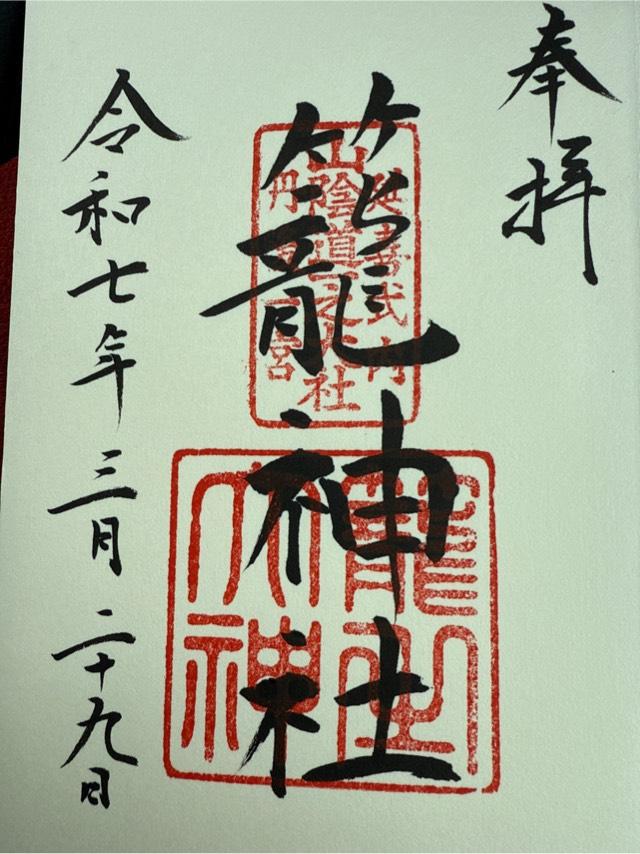 奉拝
延喜式内
山陰道一之大社
丹後一宮
籠神社
籠之
大神
令和七年三月二十九日